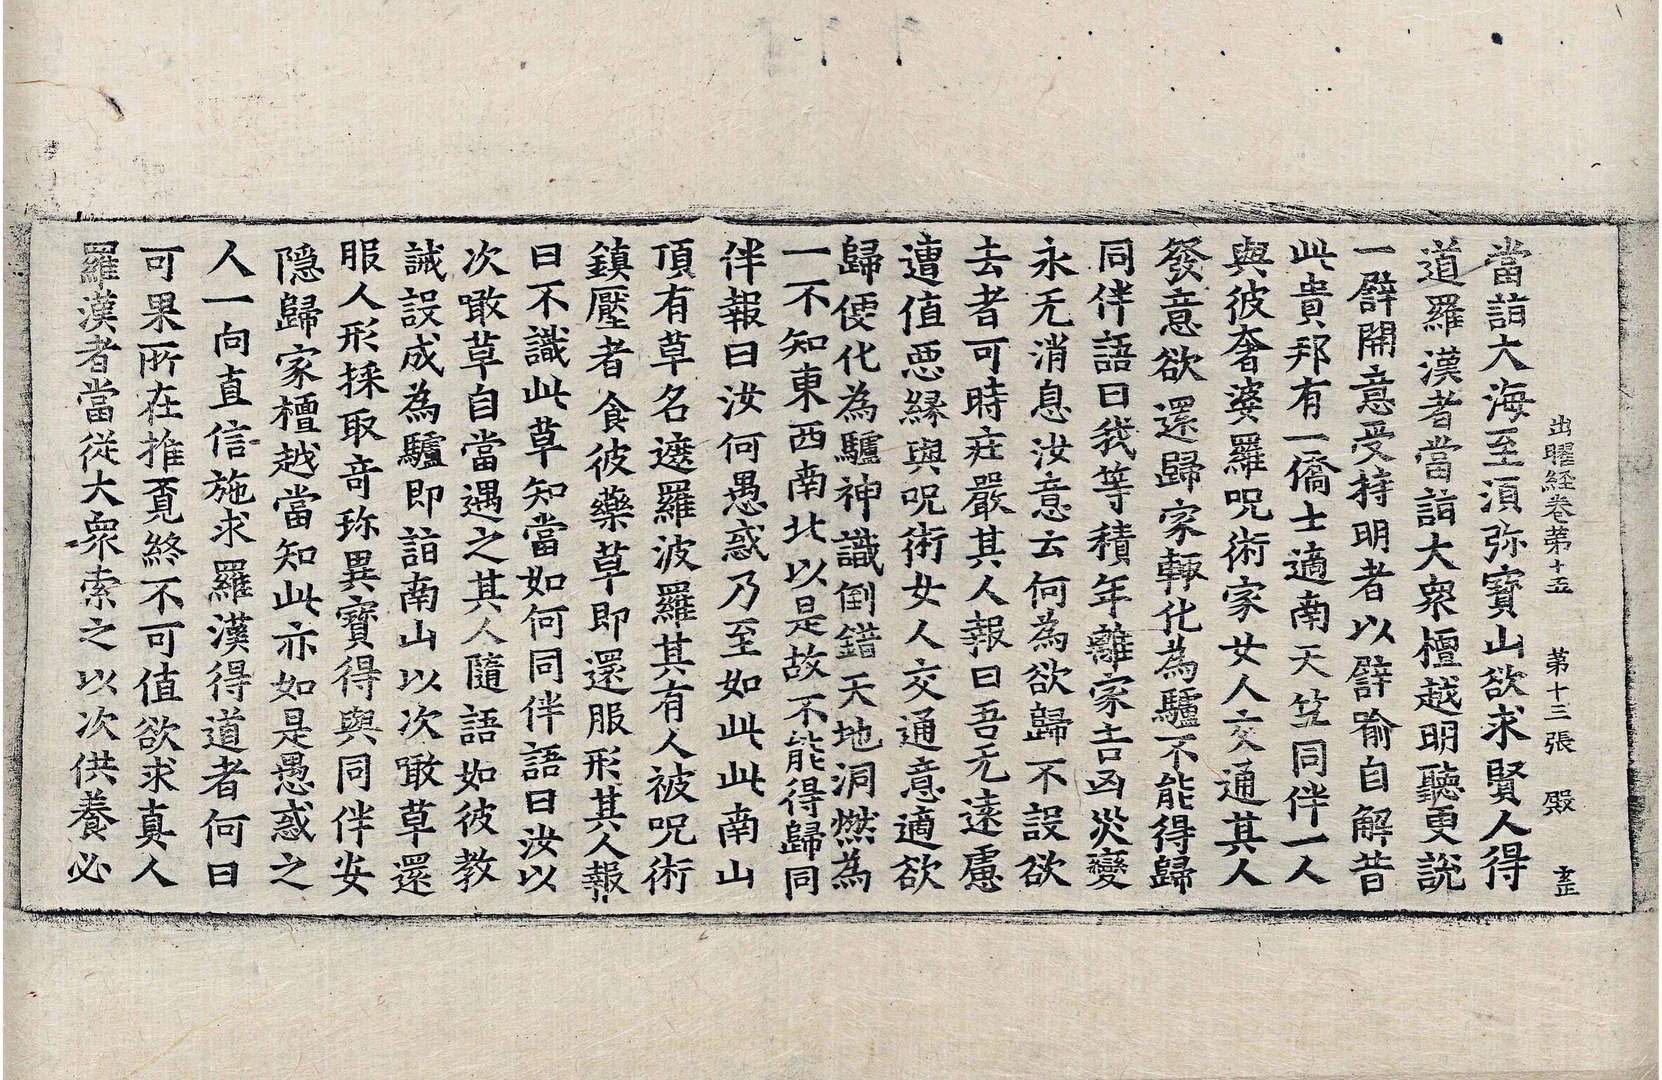 出曜経巻第十五　第十三張　殿　玄正
當詣大海至湏弥寳山欲求賢人得
道羅漢者當詣大衆檀越明聽更說
一譬開意受持明者以譬喻自解昔
此貴邦有一僑士適南天竺同伴一人
與彼奢婆羅呪術家女人交通其人
發意欲還歸家輙化為驢不能得歸
同伴語曰我等積年離家吉凶災變
永无消息汝意云何為欲歸不設欲
去者可時莊嚴其人報曰吾无遠慮
遭值惡縁與呪術女人交通意適欲
歸便化為驢神識倒錯天地洞燃為
一不知東西南北以是故不能得歸同
伴報曰汝何愚惑乃至如此此南山
頂有草名遮羅波羅其有人被呪術
鎮壓者食彼藥草即還服形其人報
曰不識此草知當如何同伴語曰汝以
次噉草自當遇之其人隨語如彼教
誡設成為驢即詣南山以次噉草還
服人形採取竒珎異寳得與同伴安
隠歸家檀越當知此亦如是愚惑之
人一向直信施求羅漢得道者何曰
可果所在推覓終不可值欲求真人
羅漢者當従大衆索之以次供養必